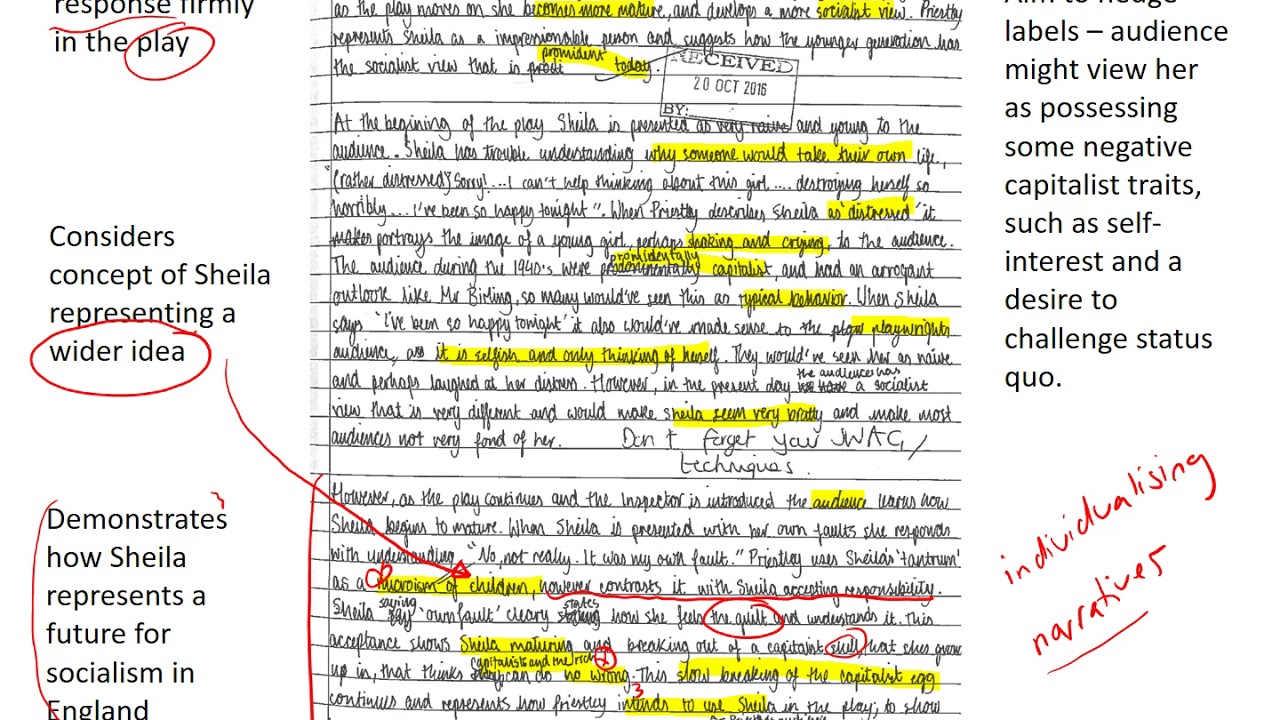 response firmly
in the play
Considers
concept of Sheila
representing a
wider idea
Demonstrates
how Sheila
represents a
future for
socialism in
England
as the play moves on she becomes more mature, and develops a more socialist view. Priestley
represents Sheila as a impressionable person and suggests how the younger generation has
promident
the socialist view that is today.
RECEIVED
20 OCT 2016
BY:
At the begining of the play Sheila is presented as very naive and young to the
audience. Sheila has trouble understanding why someone would take their own life,
"(rather distressed) Sorry!...I can't help thinking about this girl.... destroying herself so
horribly.... I've been so happy tonight". When Priestley describes Sheila as 'distressed' it
makes portrays the image of a young girl, perhaps shaking and crying, to the audience.
promidentally
The audience during the 1940's were capitalist, and had an arrogant
outlook like Mr Birling, so many would've seen this as typical behavior. When Sheila
says 'I've been so happy tonight' it also would've made sense to the playwrights
audience, as it is selfish and only thinking of herself. They would've seen her as naive
the audiences has
and perhaps laughed at her distress. However, in the present day a socialist
view that is very different and would make sheila seem very bratty and make most
audiences not very fond of her. Don't forget your JWAG/
techniques.
However, as the play continues and the Inspector is introduced the audience learns how
Sheila begins to mature. When Sheila is presented with her own faults she responds
with understanding. "No, not really. It was my own fault." Priestley uses Sheila's 'tantrum'
as a microism of children, however contrasts it with Sheila accepting responsibility.
saying states
Sheila 'own fault' cleary how she feels the guilt and understands it. This
acceptance shows Sheila maturing and breaking out of a capitalist shell that shes grow
capitalists and the rich
up in, that thinks can do no wrong. This slow breaking of the capitalist egg
3
continues and represents how priestley intends to use Sheila in the play; to show
Aim to hedge
labels – audience
might view her
as possessing
some negative
capitalist traits,
such as self-
interest and a
desire to
challenge status
quo.
individualising
narratives